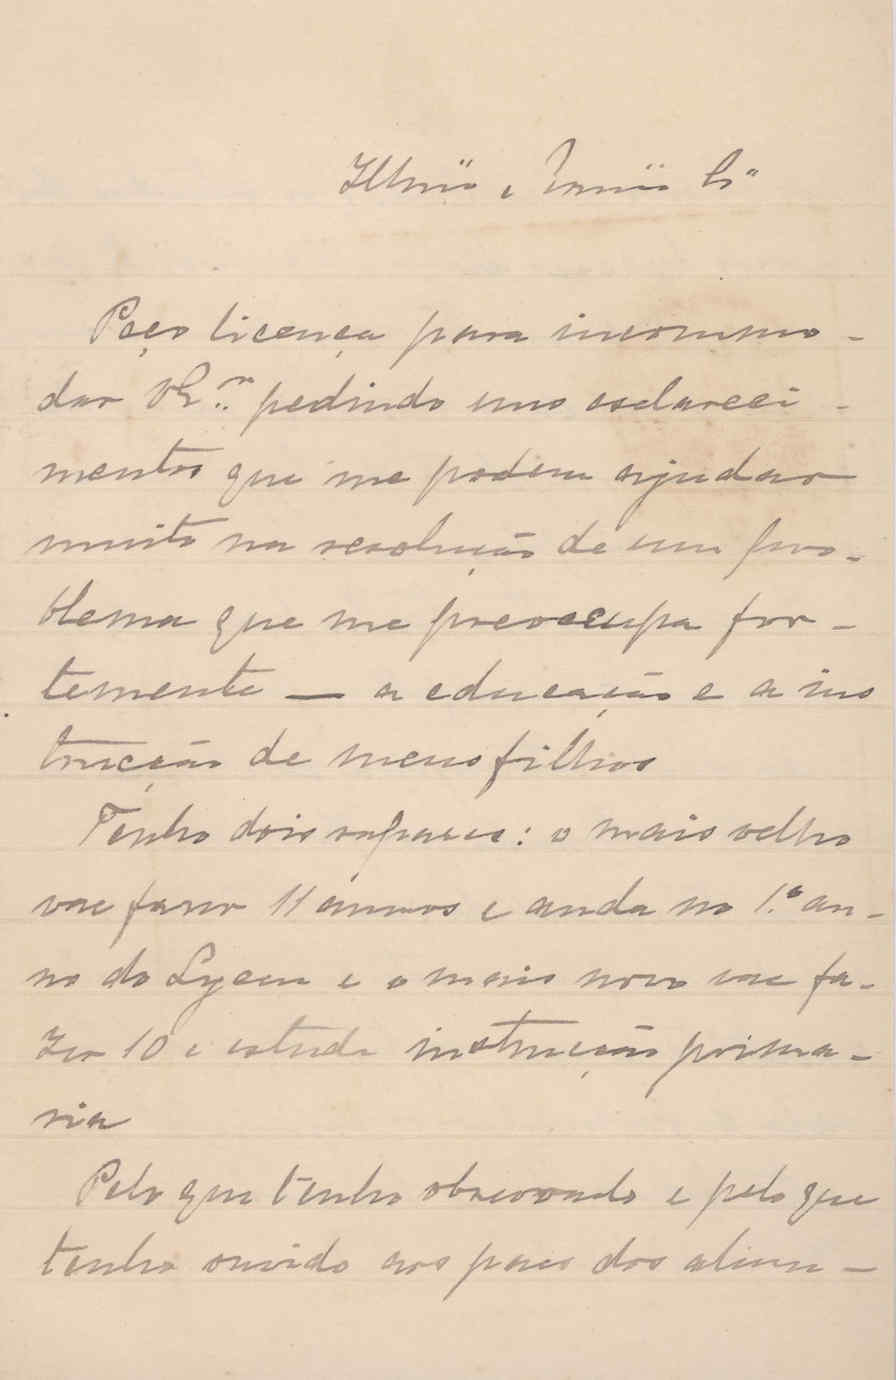 Illmo e Exmo Sr
Peço licença para incommo-
dar V. Ex.ª pedindo uns esclareci-
mentos que me podem ajudar
muito na resolução de um pro-
blema que me preoccupa for-
temente — a educação e a ins
trucção de meus filhos
Tenho dois rapazes: o mais velho
vae fazer 11 annos e anda no 1.º an-
no do Lyceu e o mais novo vae fa-
zer 10 e estuda instrucção prima-
ria
Pelo que tenho observado e pelo que
tenho ouvido aos paes dos alum-